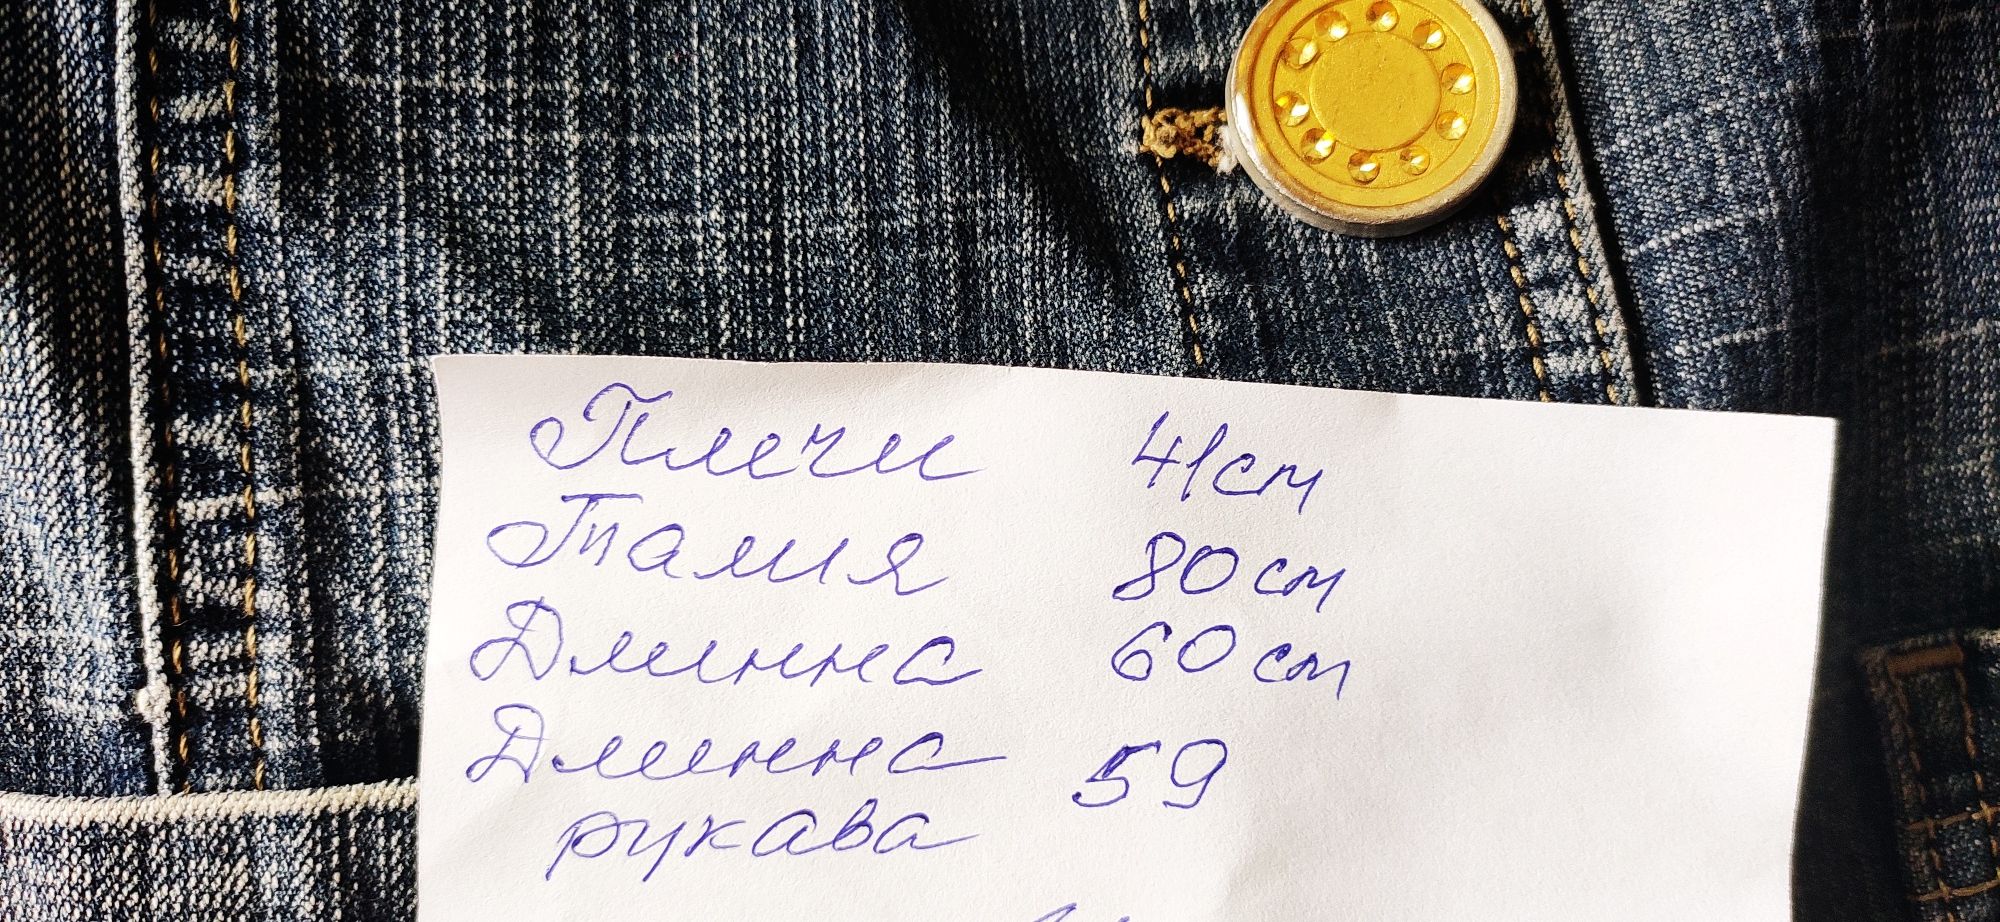 Плечи 41см
Талия 80см
Длинна 60см
Длинна 59
рукава